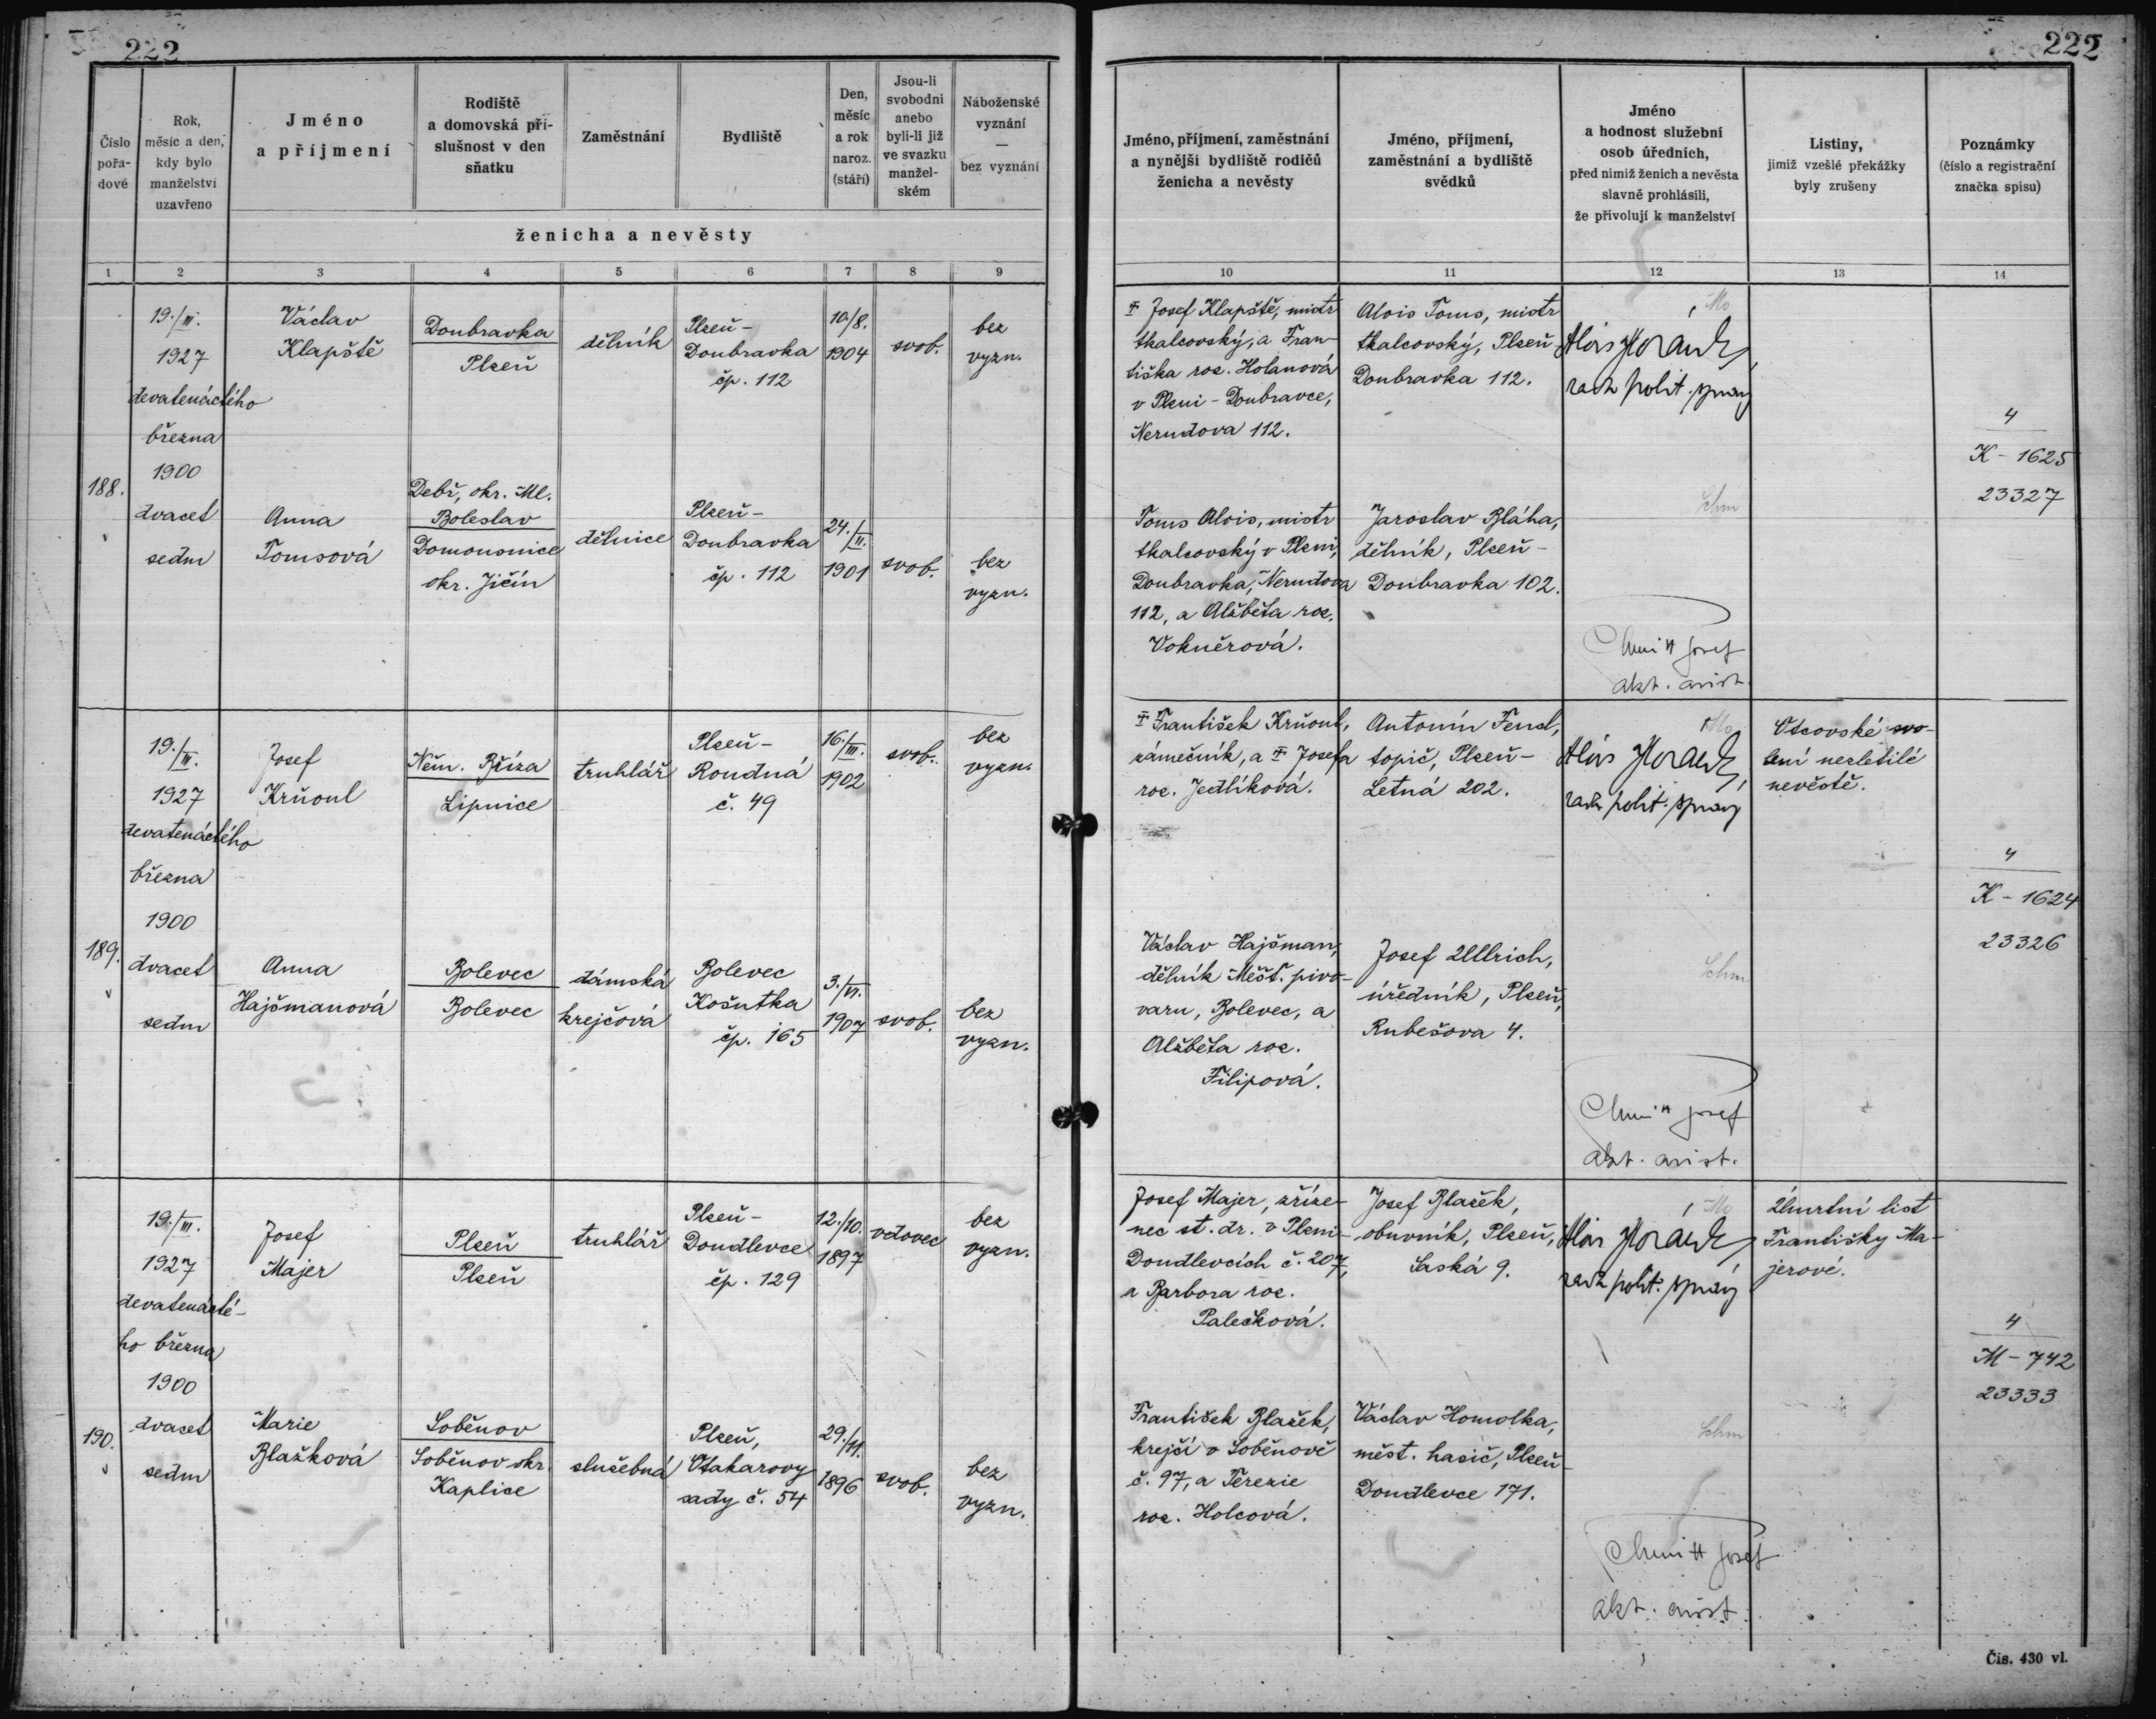 222
222
Číslo pořa- dové
Rok, měsíc a den, kdy bylo manželství uzavřeno
Jméno a příjmení
Rodiště a domovská pří- slušnost v den sňatku
Zaměstnání
Bydliště
Den, měsíc a rok naroz. (stáří)
Jsou-li svobodni anebo byli-li již ve svazku manžel- ském
Náboženské vyznání — bez vyznání
ženicha a nevěsty
Jméno, příjmení, zaměstnání a nynější bydliště rodičů ženicha a nevěsty
Jméno, příjmení, zaměstnání a bydliště svědků
Jméno a hodnost služební osob úředních, před nimiž ženich a nevěsta slavně prohlásili, že přivolují k manželství
Listiny, jimiž vzešlé překážky byly zrušeny
Poznámky (číslo a registrační značka spisu)
1 2 3 4 5 6 7 8 9 10 11 12 13 14
188.
19./III.
1927
devatenáctého
března
1900
dvacet
sedm
Václav
Klapště
Doubravka
Plzeň
dělník
Plzeň-
Doubravka
čp. 112
10/8.
1904
svob.
bez
vyzn.
Josef Klapště, mistr
tkalcovský, a Fran-
tiška roz. Holanová
v Plzni - Doubravce,
Nerudova 112.
Alois Toms, mistr
tkalcovský, Plzeň-
Doubravka 112.
Mo
rada polit. správy
4
K - 1625
23327
Anna
Tomsová
Debř, okr. Ml.
Boleslav
Domousnice
okr. Jičín
dělnice
Plzeň-
Doubravka
čp. 112
24./II.
1901
svob.
bez
vyzn.
Toms Alois, mistr
tkalcovský v Plzni,
Doubravka, Nerudova
112, a Alžběta roz.
Vokněrová.
Jaroslav Bláha,
dělník, Plzeň-
Doubravka 102.
Schm
Josef
189.
19./III.
1927
devatenáctého
března
1900
dvacet
sedm
Josef
Krňoul
Něm. Bříza
Lipnice
truhlář
Plzeň-
Roudná
č. 49
16./III.
1902
svob.
bez
vyzn.
František Krňoul,
zámečník, a Josefa
roz. Jedlíková.
Antonín Fend,
topič, Plzeň-
Letná 202.
Mo
rada polit. správy
Otcovské svo-
lení nezletilé
nevěstě.
4
K - 1624
23326
Anna
Hajšmanová
Bolevec
Bolevec
dámská
krejčová
Bolevec
Košutka
čp. 165
3./VI.
1907
svob.
bez
vyzn.
Václav Hajšman,
dělník Měšť. pivo-
varu, Bolevec, a
Alžběta roz.
Filipová.
Josef Ullrich,
úředník, Plzeň,
Rubešova 4.
Schm
Josef
190.
19./III.
1927
devatenácté-
ho března
1900
dvacet
sedm
Josef
Majer
Plzeň
Plzeň
truhlář
Plzeň-
Doudlevce
čp. 129
12./10.
1897
vdovec
bez
vyzn.
Josef Majer, zříze-
nec st. dr. v Plzni-
Doudlevcích č. 207,
a Barbora roz.
Palečková.
Josef Blažek,
obuvník, Plzeň,
Saská 9.
Mo
rada polit. správy
Úmrtní list
Františky Ma-
jerové.
4
M - 742
23333
Marie
Blažková
Soběnov
Soběnov okr.
Kaplice
služebná
Plzeň,
Otakarovy
sady č. 54
29./11.
1896
svob.
bez
vyzn.
František Blažek,
krejčí v Soběnově
č. 97, a Terezie
roz. Holcová.
Václav Homolka,
měst. hasič, Plzeň-
Doudlevce 171.
Schm
Josef
Čís. 430 vl.